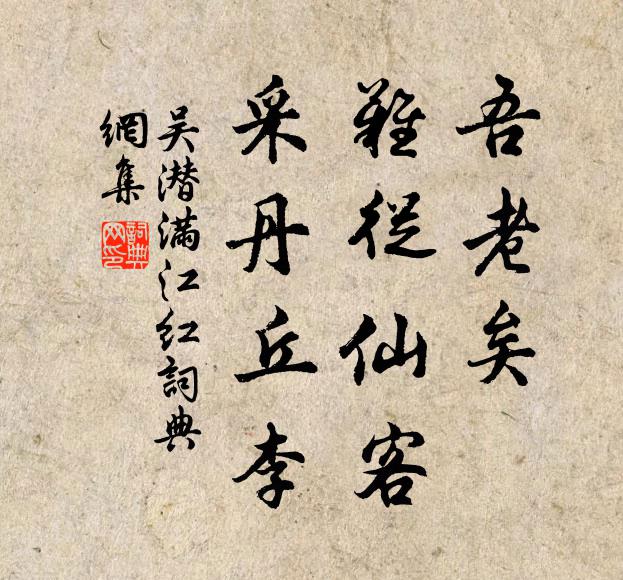 吾老矣
難從仙客
采丹丘李
吴潜满江红詞典
網集
詞典
网印